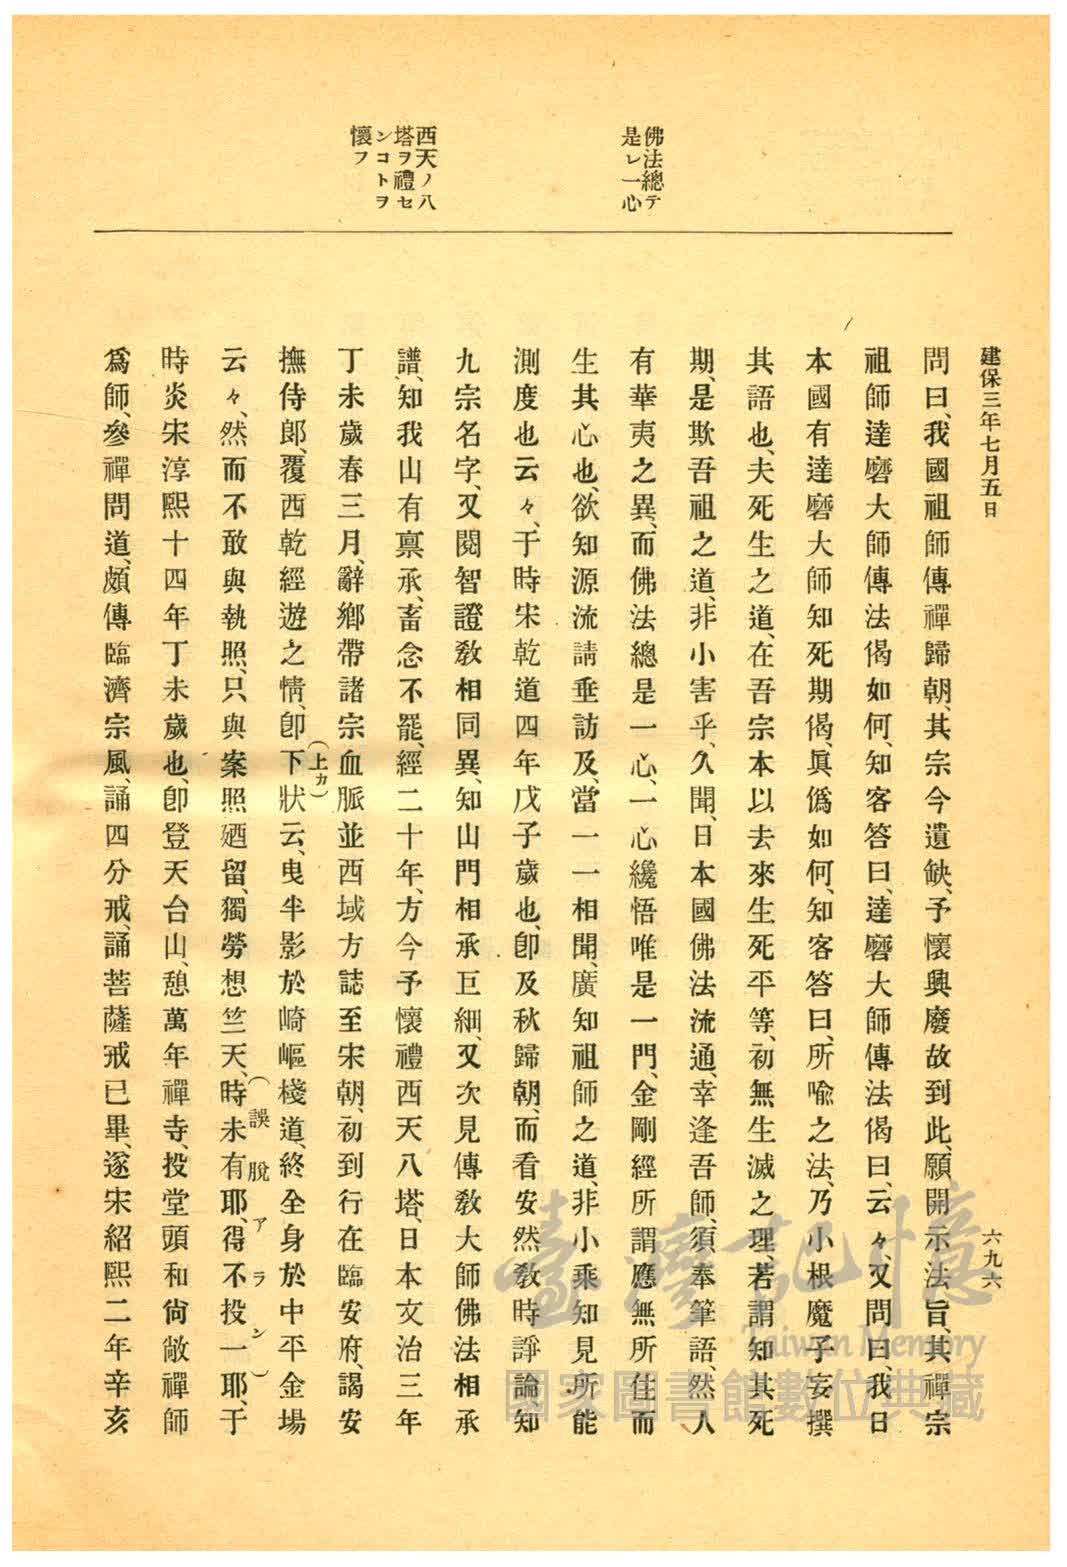 佛法總テ
是レ一心
西天ノ八
塔ヲ禮セ
ンコトヲ
懷フ
建保三年七月五日
六九六
問曰、我國祖師傳禪歸朝、其宗今遺缺、予懷興廢故到此、願開示法旨、其禪宗
祖師達磨大師傳法偈如何、知客答曰、達磨大師傳法偈曰、云々、又問曰、我日
本國有達磨大師知死期偈、眞僞如何、知客答曰、所喩之法、乃小根魔子妄撰
其語也、夫死生之道、在吾宗本以去來生死平等、初無生滅之理、若謂知其死
期、是欺吾祖之道、非小害乎、久聞、日本國佛法流通、幸逢吾師、須奉筆語、然人
有華夷之異、而佛法總是一心、一心纔悟唯是一門、金剛經所謂應無所住而
生其心也、欲知源流請垂訪及、當一一相聞、廣知祖師之道、非小乘知見所能
測度也云々、于時宋乾道四年戊子歲也、卽及秋歸朝、而看安然敎時諍論、知
九宗名字、又閱智證敎相同異、知山門相承巨細、又次見傳敎大師佛法相承
譜、知我山有稟承、畜念不罷、經二十年、方今予懷禮西天八塔、日本文治三年
丁未歲春三月、辭鄉帶諸宗血脈並西域方誌至宋朝、初到行在臨安府、謁安
撫侍郞、覆西乾經遊之情、卽下狀云、曳半影於崎嶇棧道、終全身於中平金場
（上カ）
云々、然而不敢與執照、只與案照廼留、獨勞想竺天、時未有耶、得不投一耶、于
（誤脫アラン）
時炎宋淳熙十四年丁未歲也、卽登天台山、憩萬年禪寺、投堂頭和尙敞禪師
爲師、參禪問道、頗傳臨濟宗風、誦四分戒、誦菩薩戒已畢、遂宋紹熙二年辛亥
臺灣記憶
Taiwan Memory
國家圖書館數位典藏